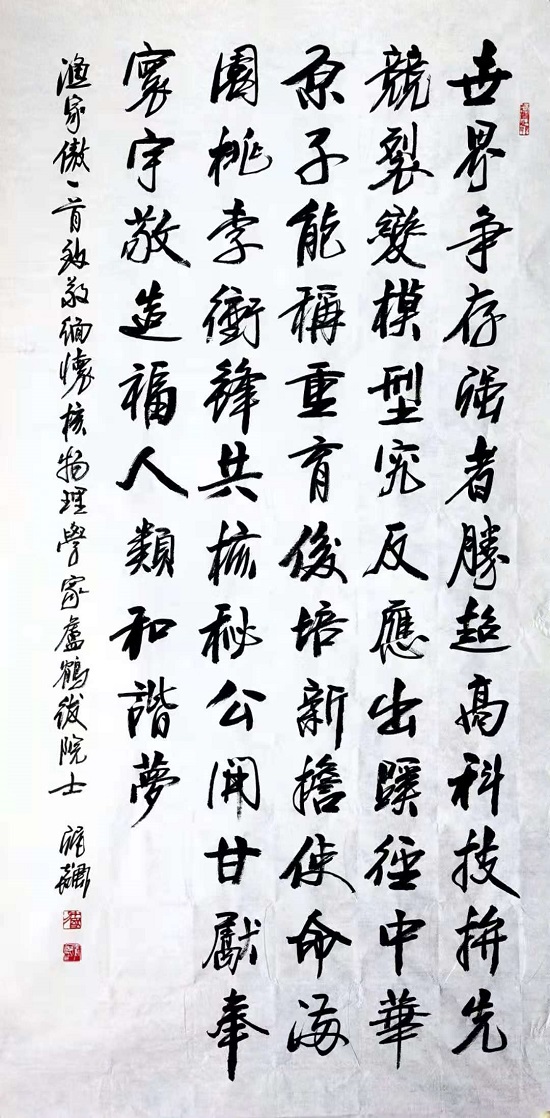 世界争存强者勝超高科技拚先
競裂變模型究反應出蹊徑中華
原子能稱重育後培新擔使命海
園桃李衝鋒共核秘公開甘獻奉
寰宇敬造福人類和諧夢
漁家傲一首致敬緬懷核物理學家盧鶴紱院士